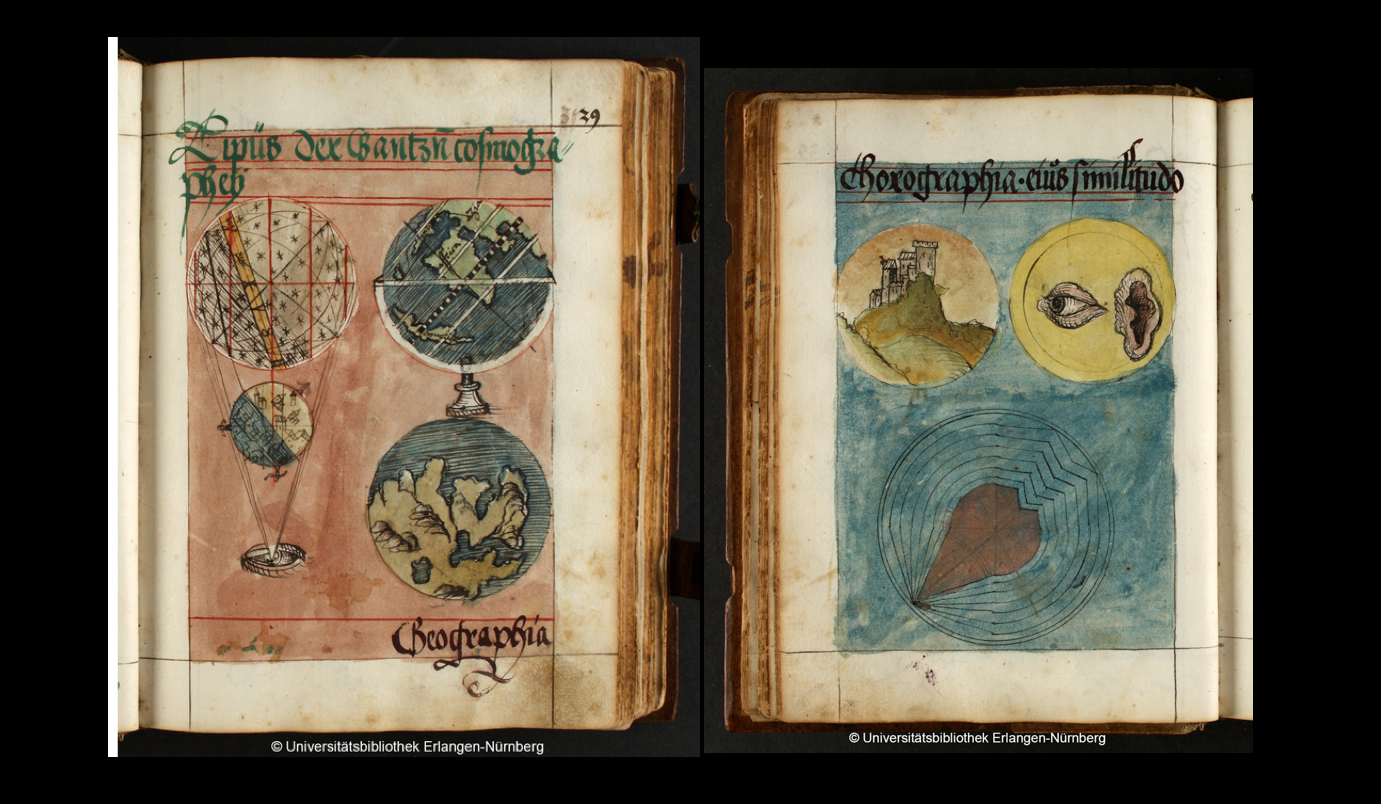 39
Tipüs der Gantzñ cosmogra
phey
Geographia
© Universitätsbibliothek Erlangen-Nürnberg
Chorographia · eiüs similitudo
© Universitätsbibliothek Erlangen-Nürnberg